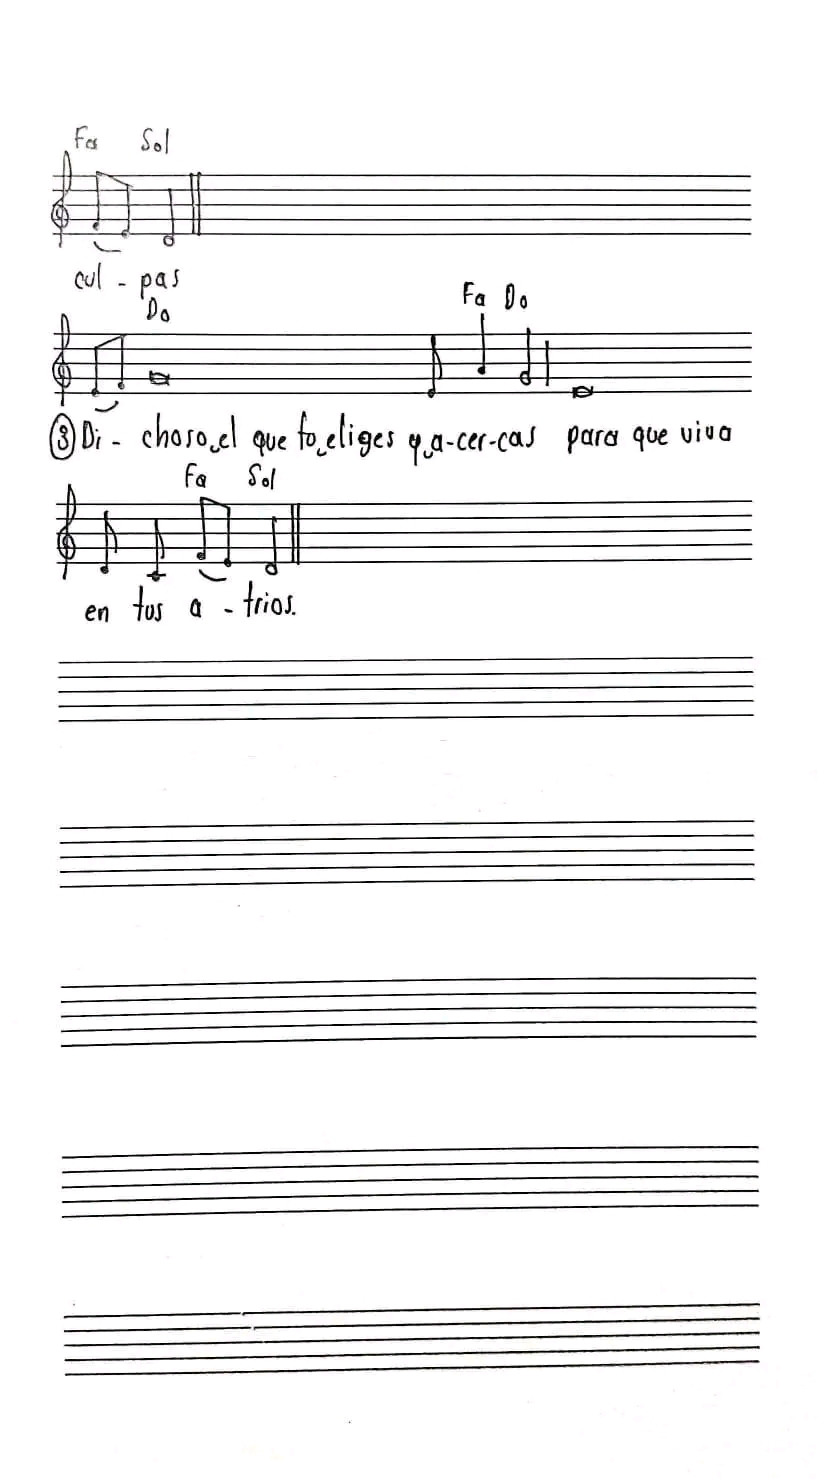 Fa Sol
cul - pas
Do
Fa Do
③ Di - choso el que tu eliges y a-cer-cas para que viva
Fa Sol
en tus a - trios.